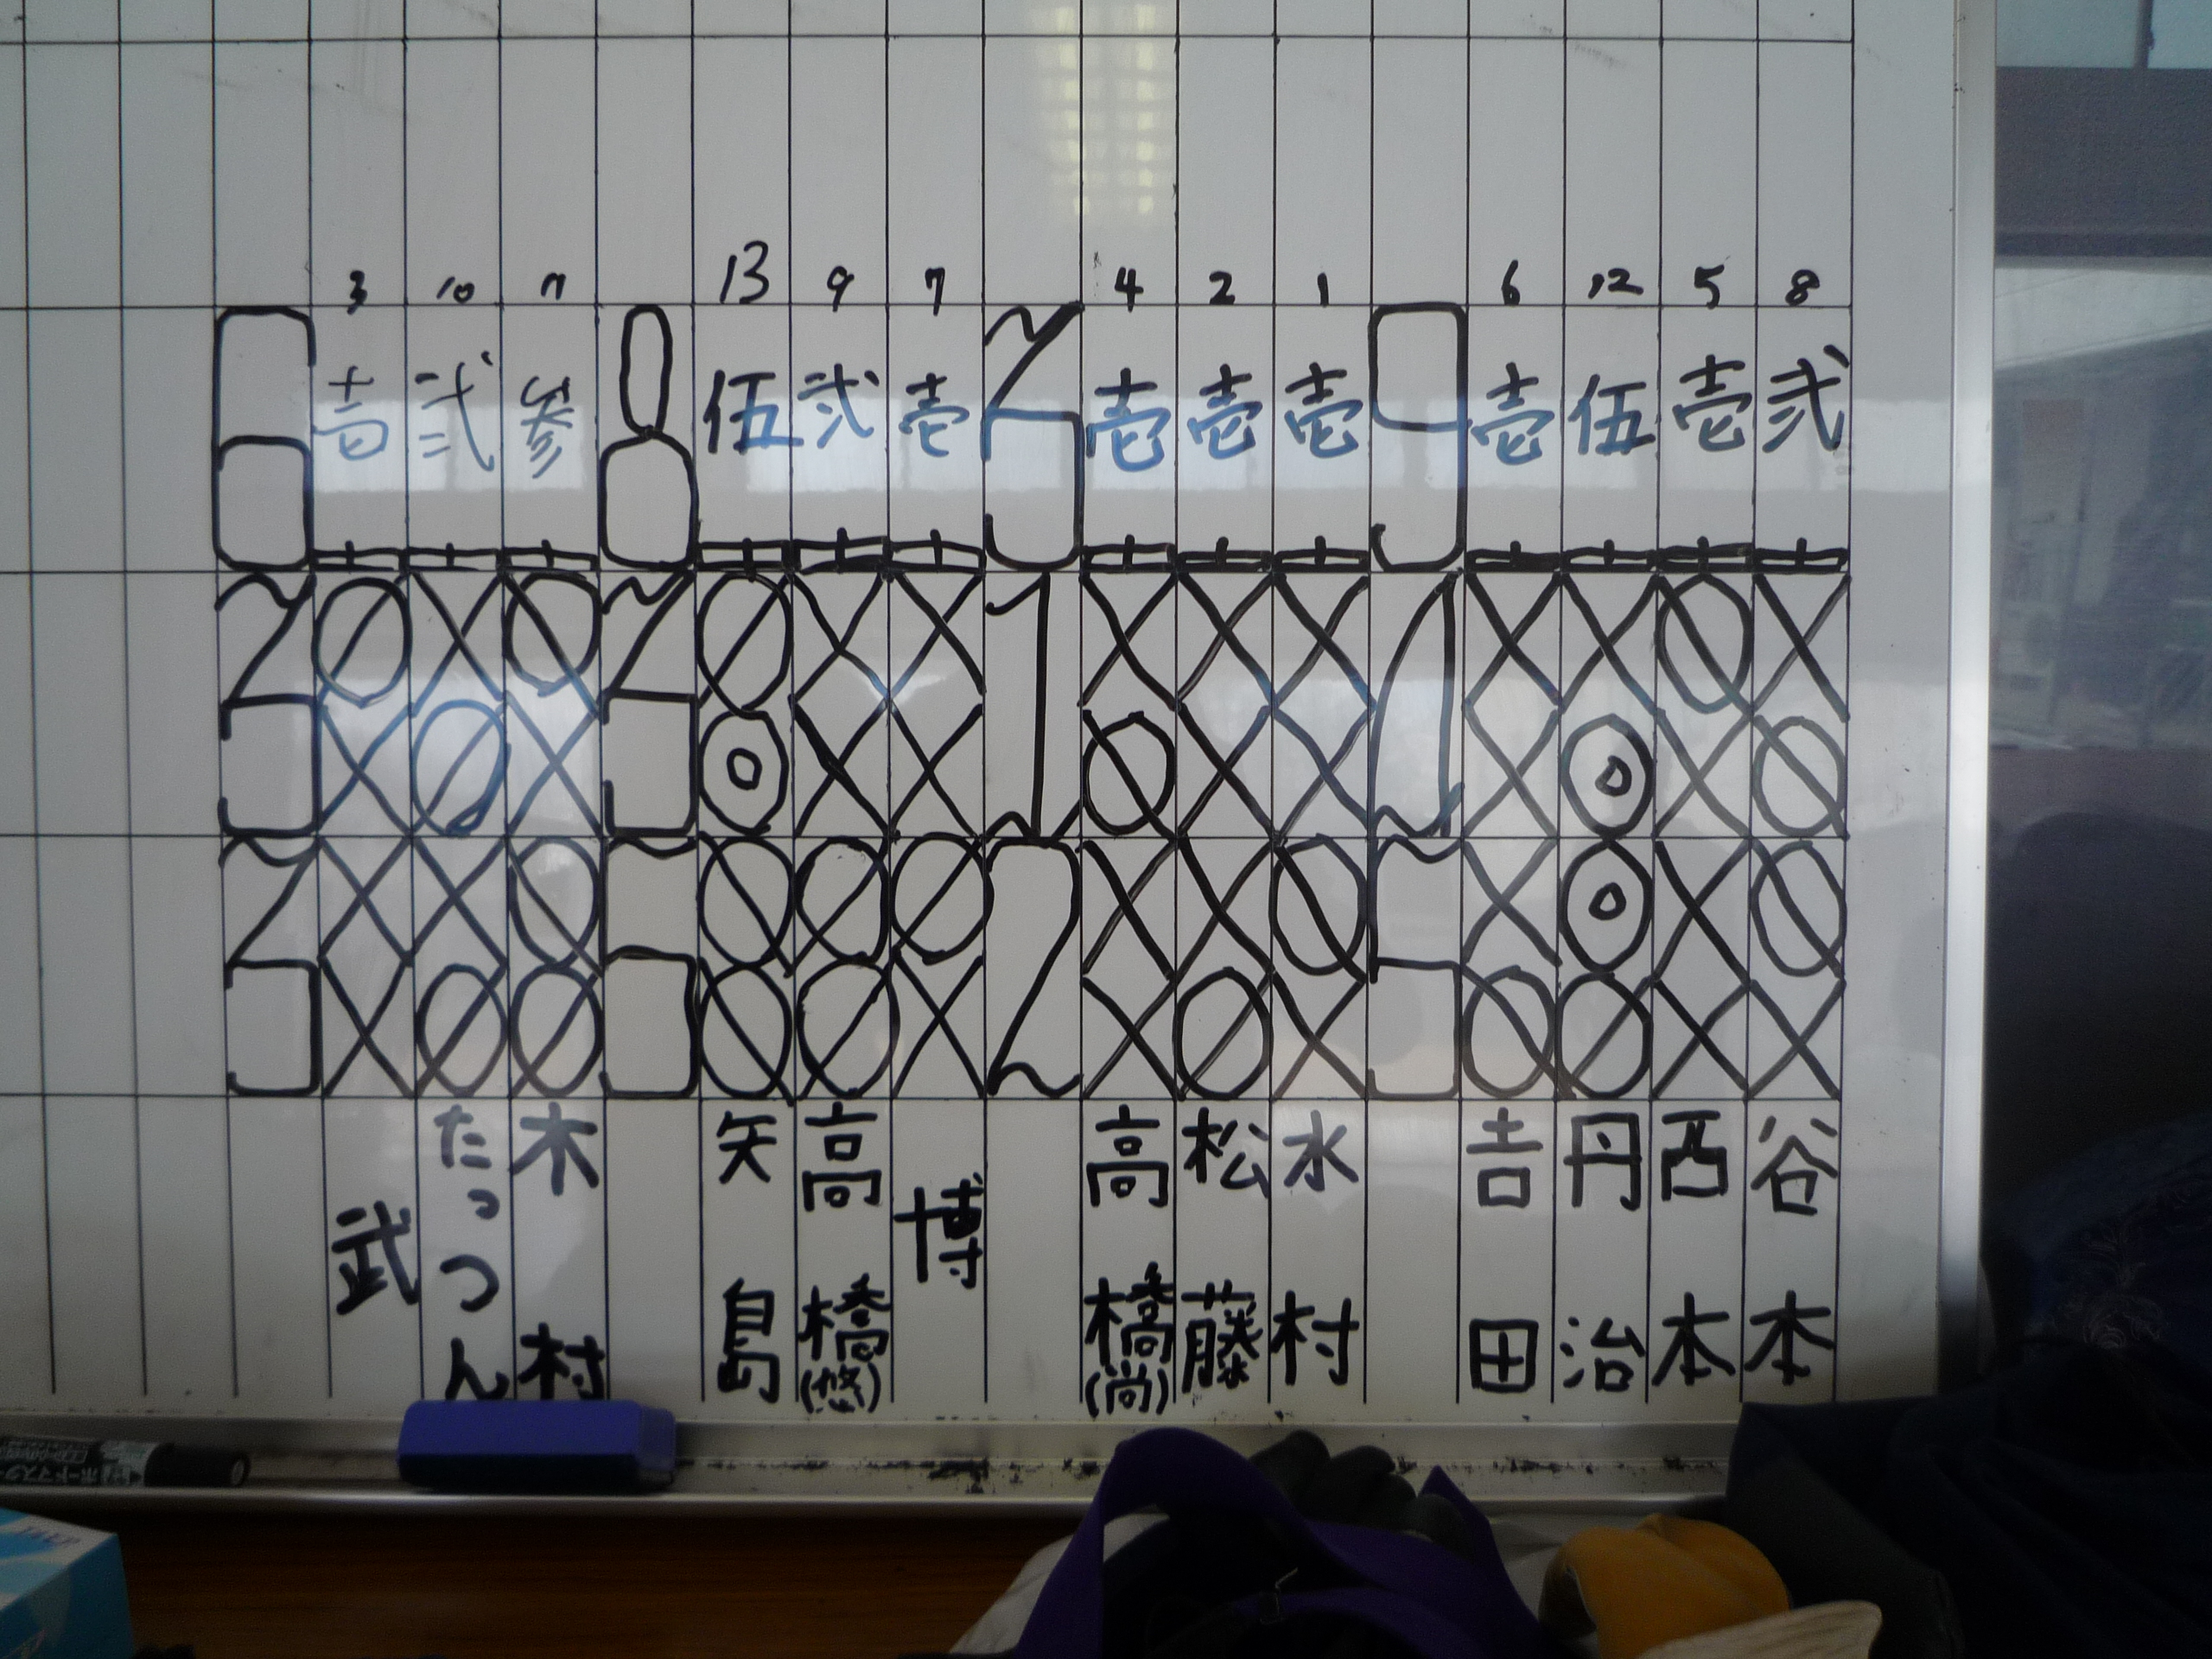 3 10 11 13 9 7 4 2 1 6 12 5 8
6 壱 弐 参 8 伍 弐 壱 3 壱 壱 壱 9 壱 伍 壱 弐
3 3 1 4
3 5 2 5
谷本
西本
丹治
吉田
水村
松藤
高橋(尚)
博
高橋(悠)
矢島
木村
たっつん
武